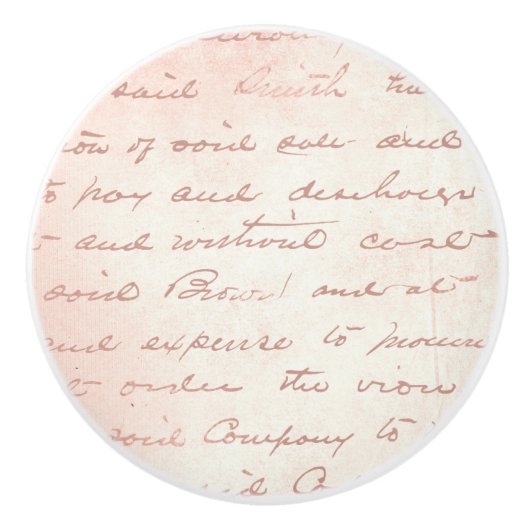 said Smith the
of said sale and
to pay and discharge
and without cost
said Brown and at
and expense to
order the
said Company to